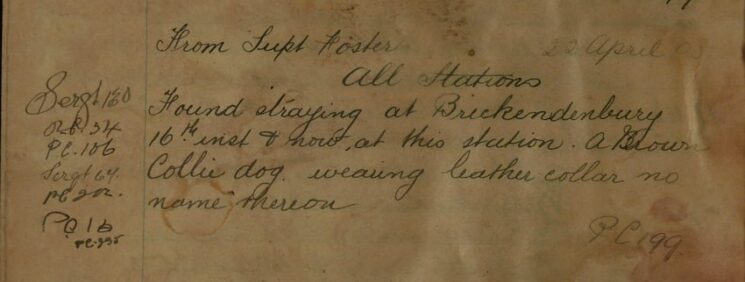 From Supt Foster 22 April 05
All Stations
Found straying at Brickendenbury
16th inst & now, at this station. A Brown
Collie dog. wearing leather collar no
name thereon
PC 199.
Sergt 180
P.C. 34
P.C. 106
Sergt 64.
PC 202.
PC 16
PC. 235